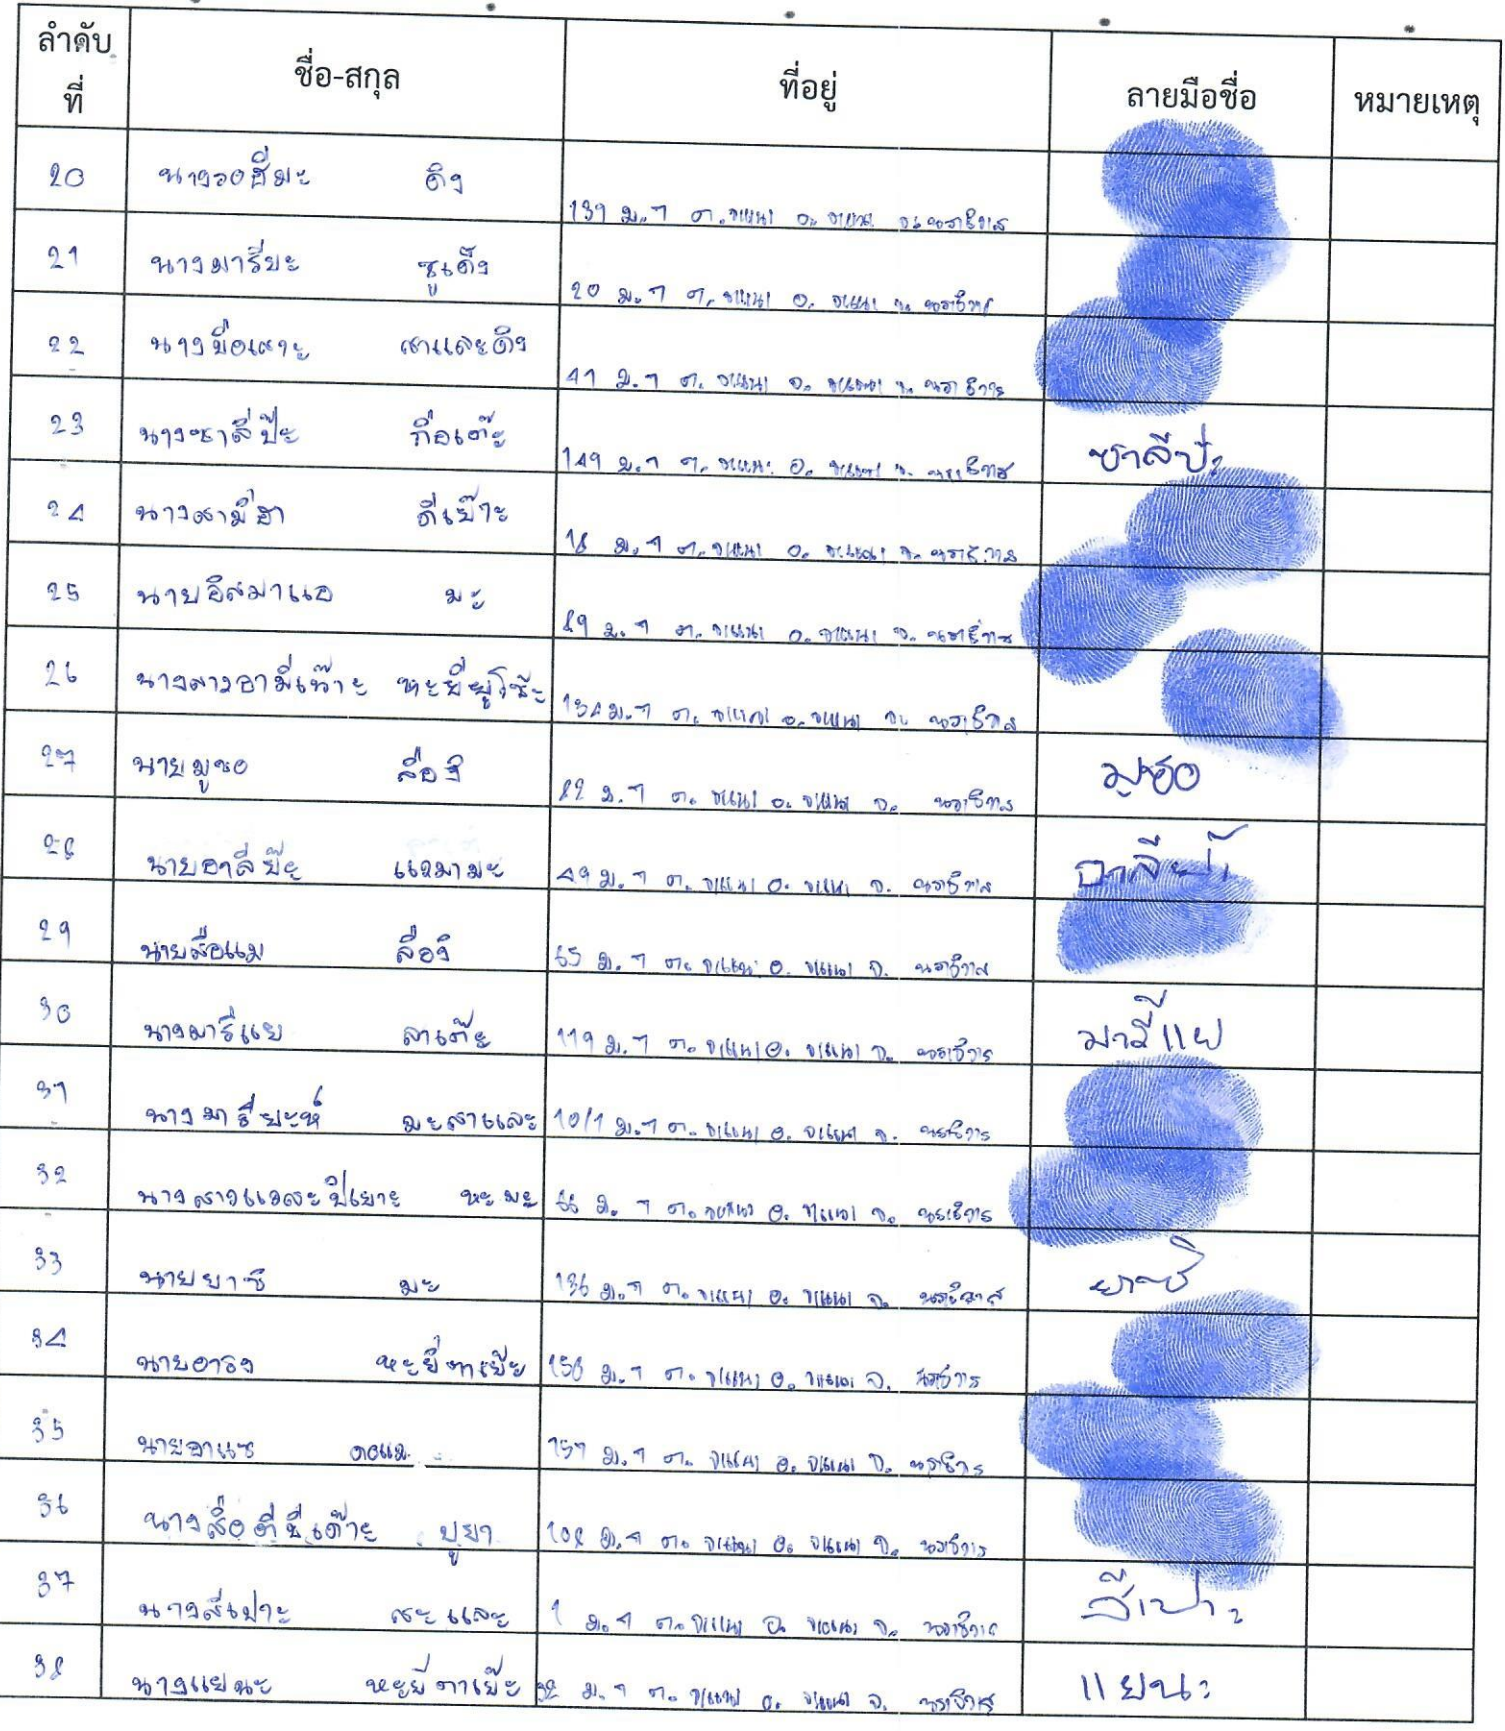 ลำดับที่ ชื่อ-สกุล ที่อยู่ ลายมือชื่อ หมายเหตุ
20 นางรอฮีมะ ดิง 139 ม.7 ต.จะแนะ อ.จะแนะ จ.นราธิวาส
21 นางมารียะ ซูเด็ง 20 ม.7 ต.จะแนะ อ.จะแนะ จ.นราธิวาส
22 นางมือเตาะ สาและดิง 41 ม.7 ต.จะแนะ อ.จะแนะ จ.นราธิวาส
23 นางซาลีป๊ะ กือเต๊ะ 149 ม.7 ต.จะแนะ อ.จะแนะ จ.นราธิวาส ซาลีป๊ะ
24 นางสามีฮา ดีเบ๊าะ 18 ม.7 ต.จะแนะ อ.จะแนะ จ.นราธิวาส
25 นายอิสมาแอ มะ 89 ม.7 ต.จะแนะ อ.จะแนะ จ.นราธิวาส
26 นางสาวอามีเน๊าะ หะยี 134 ม.7 ต.จะแนะ อ.จะแนะ จ.นราธิวาส
27 นายมูซอ ลืองิ 82 ม.7 ต.จะแนะ อ.จะแนะ จ.นราธิวาส มูซอ
28 นายอาลียะ แวมามะ 49 ม.7 ต.จะแนะ อ.จะแนะ จ.นราธิวาส
29 นายสือแม ลืองิ 65 ม.7 ต.จะแนะ อ.จะแนะ จ.นราธิวาส
30 นางมารีแย ลาเต๊ะ 119 ม.7 ต.จะแนะ อ.จะแนะ จ.นราธิวาส มารีแย
31 นางมารียะห์ มะสาและ 10/1 ม.7 ต.จะแนะ อ.จะแนะ จ.นราธิวาส
32 มะ 66 ม.7 ต.จะแนะ อ.จะแนะ จ.นราธิวาส
33 นายยาซิ มะ 136 ม.7 ต.จะแนะ อ.จะแนะ จ.นราธิวาส ยาซิ
34 นายอารง หะยีตาเย๊ะ 156 ม.7 ต.จะแนะ อ.จะแนะ จ.นราธิวาส
35 นายอาแซ ดอแม 157 ม.7 ต.จะแนะ อ.จะแนะ จ.นราธิวาส
36 ปูยา 108 ม.7 ต.จะแนะ อ.จะแนะ จ.นราธิวาส
37 นางสีเปาะ สะและ 1 ม.7 ต.จะแนะ อ.จะแนะ จ.นราธิวาส สีเปาะ
38 นางแยนะ หะยีตาเย๊ะ 32 ม.7 ต.จะแนะ อ.จะแนะ จ.นราธิวาส แยนะ